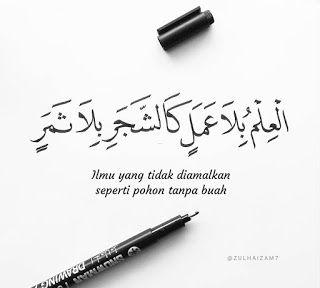 الْعِلْمُ بِلَا عَمَلٍ كَالشَّجَرِ بِلَا ثَمَرٍ
Ilmu yang tidak diamalkan
seperti pohon tanpa buah
@ZULHAIZAM7
DRAWING